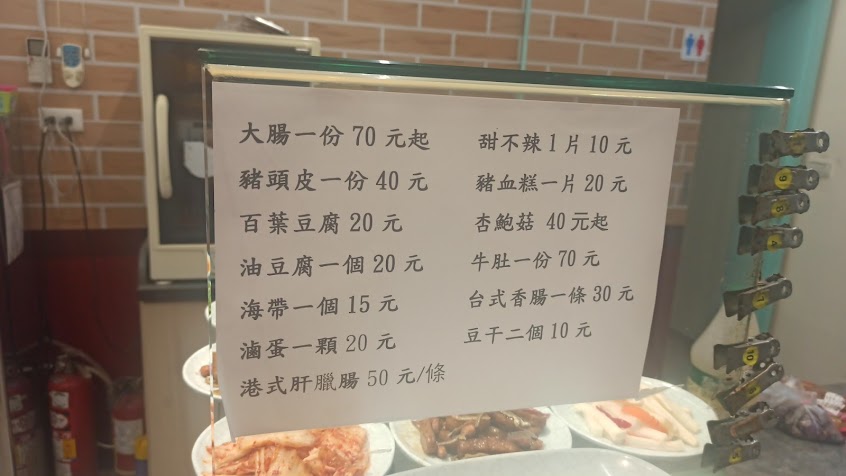 大腸一份 70 元起
豬頭皮一份 40 元
百葉豆腐 20 元
油豆腐一個 20 元
海帶一個 15 元
滷蛋一顆 20 元
港式肝臘腸 50 元/條
甜不辣 1 片 10 元
豬血糕一片 20 元
杏鮑菇 40 元起
牛肚一份 70 元
台式香腸一條 30 元
豆干二個 10 元